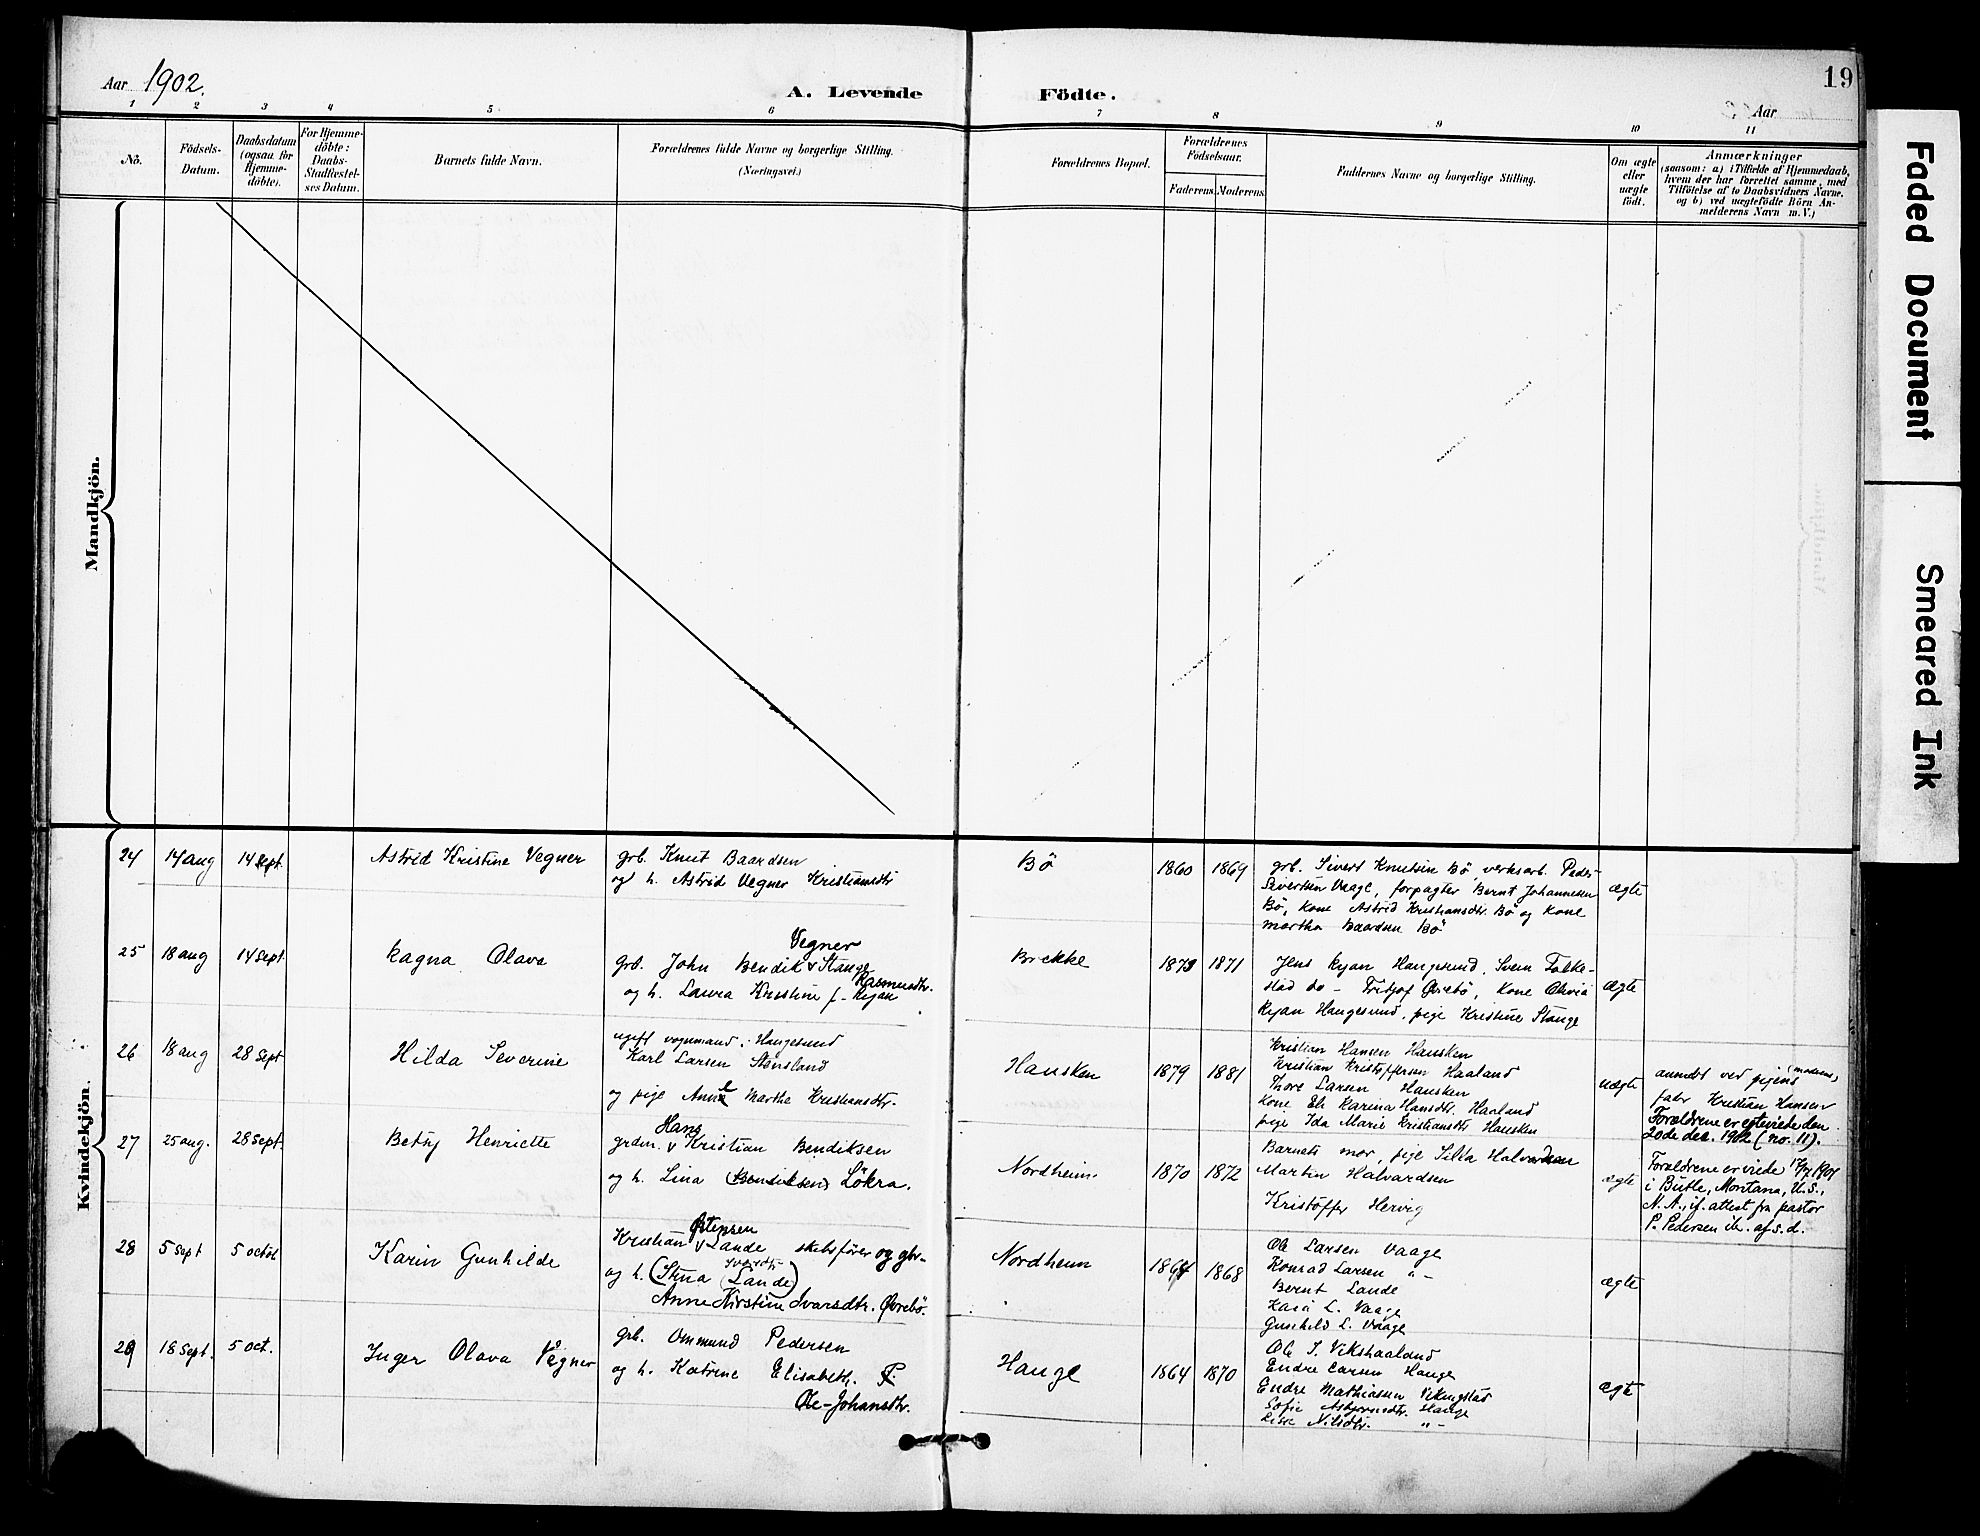 Aar 1902.
A. Levende Födte.
19
Aar
1 2 3 4 5 6 7 8 9 10 11
No.
Födsels-
Datum.
Daabsdatum
(ogsaa for
Hjemme-
döbte).
For Hjemme-
döbte:
Daabs-
Stadfæstel-
ses Datum.
Barnets fulde Navn.
Forældrenes fulde Navne og borgerlige Stilling.
(Næringsvei.)
Forældrenes Bopæl.
Forældrenes
Födselsaar.
Faderens. Moderens.
Faddernes Navne og borgerlige Stilling.
Om ægte
eller
uægte
født.
Anmærkninger
(saasom: a) i Tilfælde af Hjemmedaab,
hvem der har forrettet samme, med
Tilföielse af to Daabsvidners Navne.
og b) ved uægtefödte Börn An-
melderens Navn m.V.)
Mandkjön.
Kvindekjön.
24 14 aug 14 sept. Astrid Kristine Vegner
grb. Knut Baardsen
og h. Astrid Vegner Kristiansdtr
Bö 1860 1869
grb. Sivert Knutsen Bö, verksarb. Peder
Sivertsen Vaage, forpagter Bernt Johannesen
Bö, kone Astrid Kristiansdtr. Bö og kone
Martha Baardsen Bö
ægte
25 18 aug 14 sept Ragna Olava
Vegner
grb. John Bendik v Stange
og h. Laura Kristine f- Ryan
Rasmusdtr.
Brekke 1873 1871
Jens Ryan Haugesund, Svein Falke-
stad do - Fritjof Øvrebö, kone Olivia
Ryan Haugesund, pige Kristine Stange
ægte
26 18 aug 28 sept Hilda Severine
ugift vognmand i Haugesund
Karl Larsen Stensland
og pige Anne Martha Kristiansdtr.
Hausken 1879 1881
Kristian Hansen Hausken
Kristian Kristoffersen Haaland
Thore Larsen Hausken
Kone Eli Karina Hansdtr. Haaland
pige Ida Marie Kristiansdtr Hausken
uægte
anmeldt ved pigens (moderens)
fader Kristian Hansen
Forældrene er egteviede den
2ode dec. 1902 (no. 11).
27 25 aug. 28 sept. Betsy Henriette
Hans
grdm. v Kristian Bendiksen
og h. Lina (Bendiksen) Lökra.
Nordheim. 1870 1872
Barnets mor, pige Silla Halvardsen
Martin Halvardsen
Kristoffer Hervig
ægte
Forældrene er viede 17/7 1901
i Butte, Montana, U.S.,
N. A., if. attest fra pastor
P. Pedersen ib. af s. d.
28 5 sept 5 octob Karin Gunhilde
Østensen
Kristian v Lande skibsfører og gbr.
Ivarsdtr
og h. (Stina (Lande)
Anne Kirstine Ivarsdtr. Øvrebö.
Nordheim 1864 1868
Ole Larsen Vaage
Konrad Larsen "-
Bernt Lande
Kari L. Vaage
Gunhild L. Vaage
ægte
29 18 sept. 5 oct. Inger Olava Vegner
grb. Ommund Pedersen
og h. Katrine Elisabeth.
Ole-Johansdtr.
Hauge 1864 1870
Ole I. Vikshaaland
Endre Larsen Hauge
Endre Mathiasen Vikingstad
Sofie Asbjørnsdtr. Hauge
Lisa Nilsdtr. "-
ægte
Faded Document
Smeared Ink